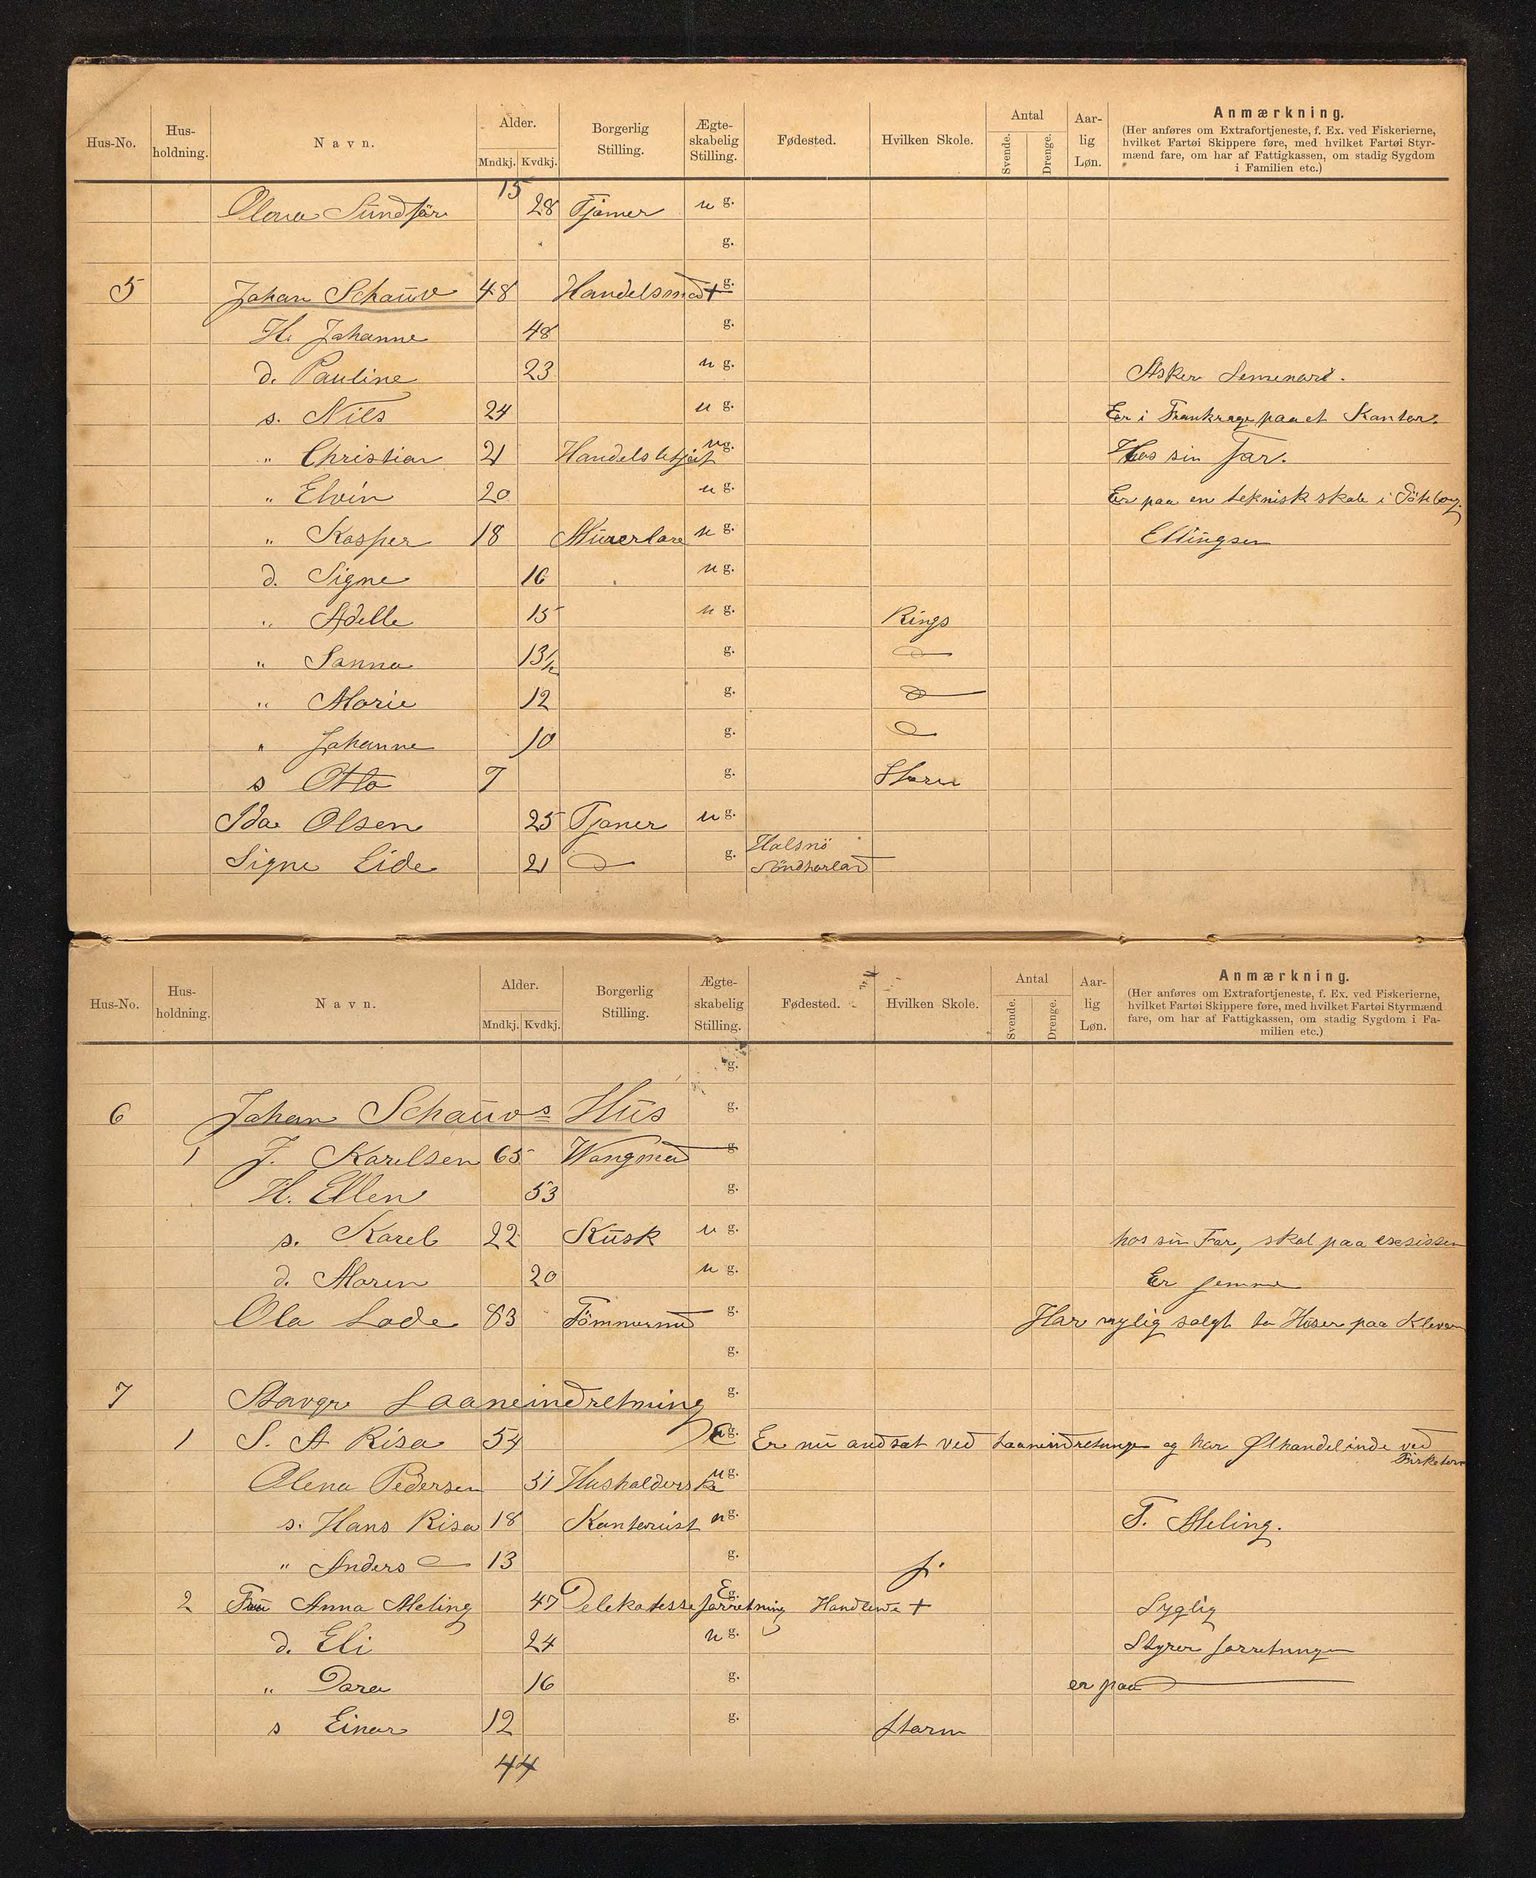 Hus-No. Hus-holdning. Navn. Alder. Mndkj. Kvdkj. Borgerlig Stilling. Ægte-skabelig Stilling. Fødested. Hvilken Skole. Antal Svende. Drenge. Aar-lig Løn. Anmærkning.
(Her anføres om Extrafortjeneste, f. Ex. ved Fiskerierne,
hvilket Fartøi Skippere føre, med hvilket Fartøi Styr-
mænd fare, om har af Fattigkassen, om stadig Sygdom
i Familien etc.)
15
Olena Sundfør 28 Tjener u g.
g.
5 Johan Schauv 48 Handelsmd + g.
H. Johanne 48 g.
d. Pauline 23 u g. Asker Semenari.
s. Nils 24 u g. Er i Frankrage paa et Kontor.
" Christian 21 Handelsbtjent u g. Hos sin Far.
" Elvin 20 u g. Er paa en teknisk skole i Göteborg.
" Kasper 18 Murerlære u g. Ellingsen
d. Signe 16 u g.
" Adelle 15 u g. Kings
" Sanna 13½ g. do
" Marie 12 g. do
" Johanne 10 g. do
s Otto 7 g. Storm
Ida Olsen 25 Tjener u g.
Signe Eide 21 do g. Halsnö Söndhorland
Hus-No. Hus-holdning. Navn. Alder. Mndkj. Kvdkj. Borgerlig Stilling. Ægte-skabelig Stilling. Fødested. Hvilken Skole. Antal Svende. Drenge. Aar-lig Løn. Anmærkning.
(Her anføres om Extrafortjeneste, f. Ex. ved Fiskerierne,
hvilket Fartøi Skippere føre, med hvilket Fartøi Styrmænd
fare, om har af Fattigkassen, om stadig Sygdom i Fa-
milien etc.)
g.
6 Johan Schauvs Hus g.
1 J. Karelsen 65 Wongmed g.
H. Ellen 53 g.
s. Karel 22 Kusk u g. hos sin Far, skal paa exesissen
d. Maren 20 u g. Er jemme
Ola Lode 83 Tömmermd g. Har nylig solgt to Huser paa Kleven
g.
7 Stavgr Laaneindretning g.
1 S. A Risa 54 E g. Er nu andsat ved Laaneindretninge og har Ølhandel inde ved Firketorv
Olena Pedersen 31 Husholderske u g.
s. Hans Risa 18 Kontorist u g. T. Meling.
" Anders do 13 g. J.
2 Fru Anna Meling 47 Delekatesseforretning E g. Handlende + Syglig
d. Eli 24 u g. Styrer forretninge
" Dora 16 g. er paa do
s Einar 12 g. Storm
44